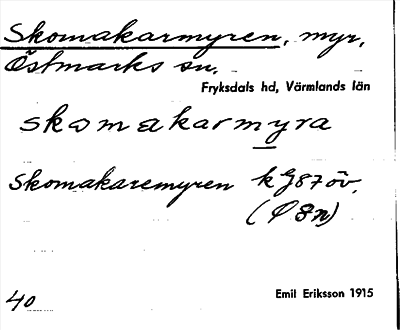 Skomakarmyren, myr,
Östmarks sn.
Fryksdals hd, Värmlands län
skomakarmyra
Skomakaremyren k G87öv.
(Ø 8n)
40
Emil Eriksson 1915